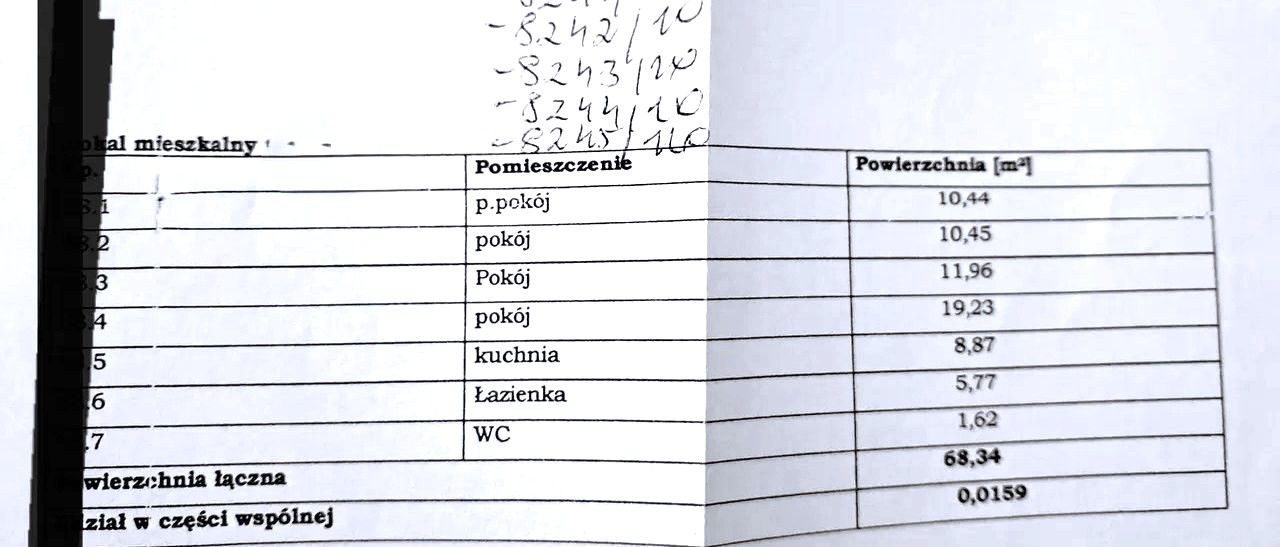 -8242/10
-8243/10
-8244/10
-8245/10
okal mieszkalny
p. Pomieszczenie Powierzchnia [m²]
8.1 p.pokój 10,44
8.2 pokój 10,45
8.3 Pokój 11,96
.4 pokój 19,23
.5 kuchnia 8,87
.6 Łazienka 5,77
.7 WC 1,62
wierzchnia łączna 68,34
dział w części wspólnej 0,0159